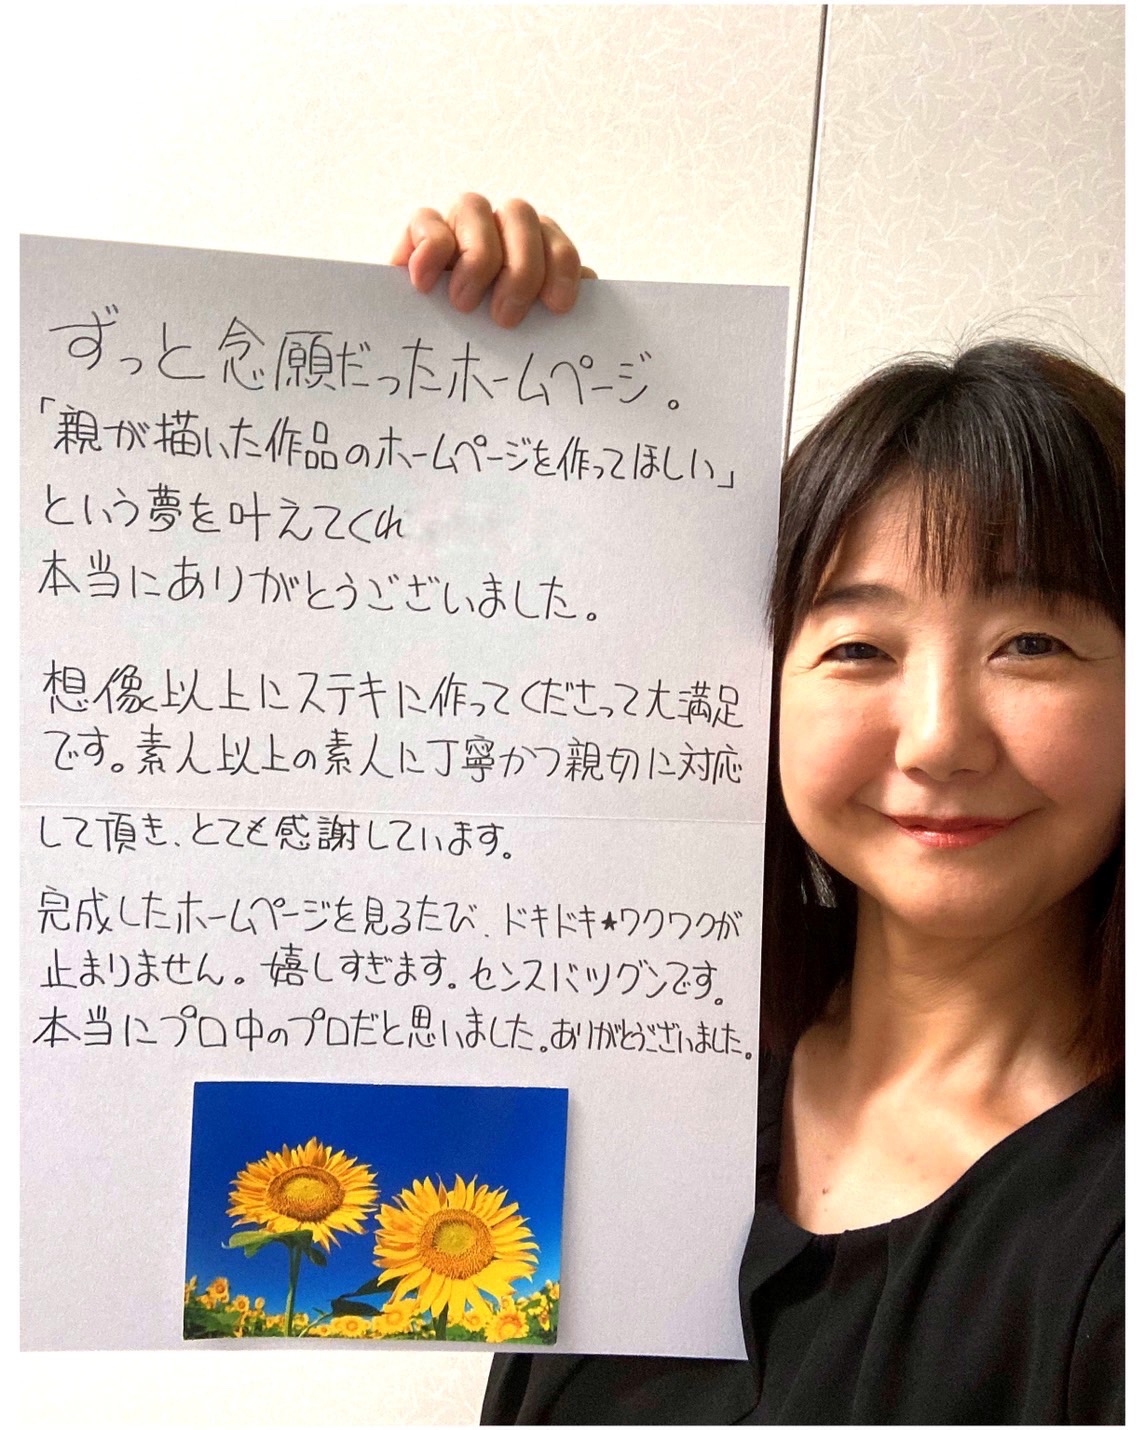 ずっと念願だったホームページ。
「親が描いた作品のホームページを作ってほしい」
という夢を叶えてくれ
本当にありがとうございました。
想像以上にステキに作ってくださって大満足
です。素人以上の素人に丁寧かつ親切に対応
して頂き、とても感謝しています。
完成したホームページを見るたび、ドキドキ★ワクワクが
止まりません。嬉しすぎます。センスバツグンです。
本当にプロ中のプロだと思いました。ありがとうございました。